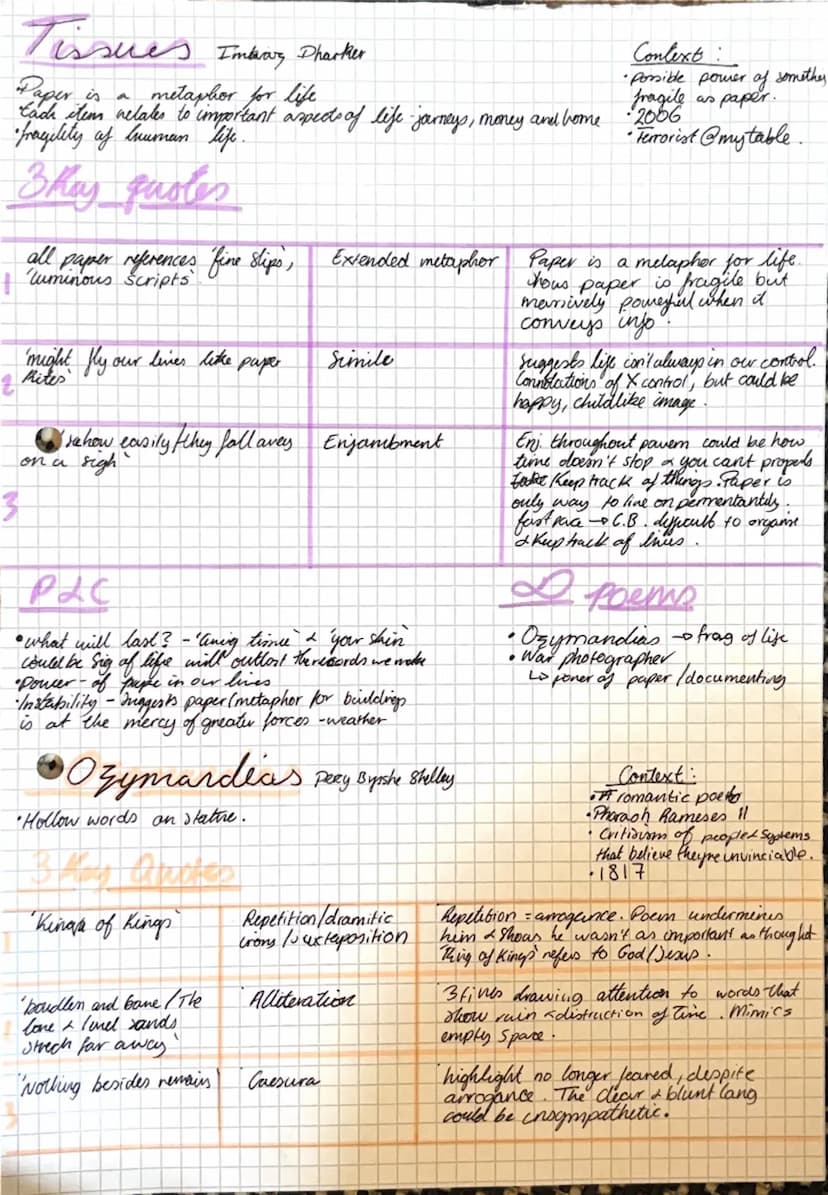 Tissues Imtiaz Dharker
Context :
• possible power of something
fragile as paper.
• 2006
• Terrorist @ my table.
• Paper is a metaphor for life
• Each item relates to important aspects of life - journeys, money and home
• fragility of human life.
3 Key quotes
1
all paper references 'fine slips',
'luminous scripts'
Extended metaphor
Paper is a metaphor for life.
Shows paper is fragile but
massively powerful when it
conveys info.
2
'might fly our lives like paper
kites'
Simile
Suggests life isn't always in our control.
Connotations of X control, but could be
happy, childlike image.
3
how easily / they fall away
on a sigh'
Enjambment
Enj. throughout could be how
time doesn't stop & you can't
keep track of things. Paper is
only way to live on
fast pace → C.B. difficult to organise
& keep track of lines.
P & C
• what will last? - & 'your skin'
could be sig of life will outlast the records we make
• Power - of paper in our lives
• Instability - suggests paper (metaphor for buildings
is at the mercy of greater forces - weather
∞ Poems
• Ozymandias → frag of life
• War photographer
↳ power of paper / documenting
Ozymandias Percy Byshe Shelley
• Hollow words on statue.
Context :
• romantic poet
• Pharaoh Rameses II
• Critisism of people & systems
that believe they're unvinciable.
• 1817
3 Key Quotes
1
'King of Kings'
Repetition / dramitic
irony / juxtaposition
Repetition = arrogance. Poem undermines
him & shows he wasn't as important as thought
'King of Kings' refers to God / Jesus.
'boudless and bare / The
lone & level sands
strech far away'
Alliteration
3 lines drawing attention to words that
show ruin & distruction of time. Mimics
empty space.
3
'Nothing besides remains'
Caesura
highlight no longer feared, despite
arrogance. The clear & blunt lang
could be unsympathetic.